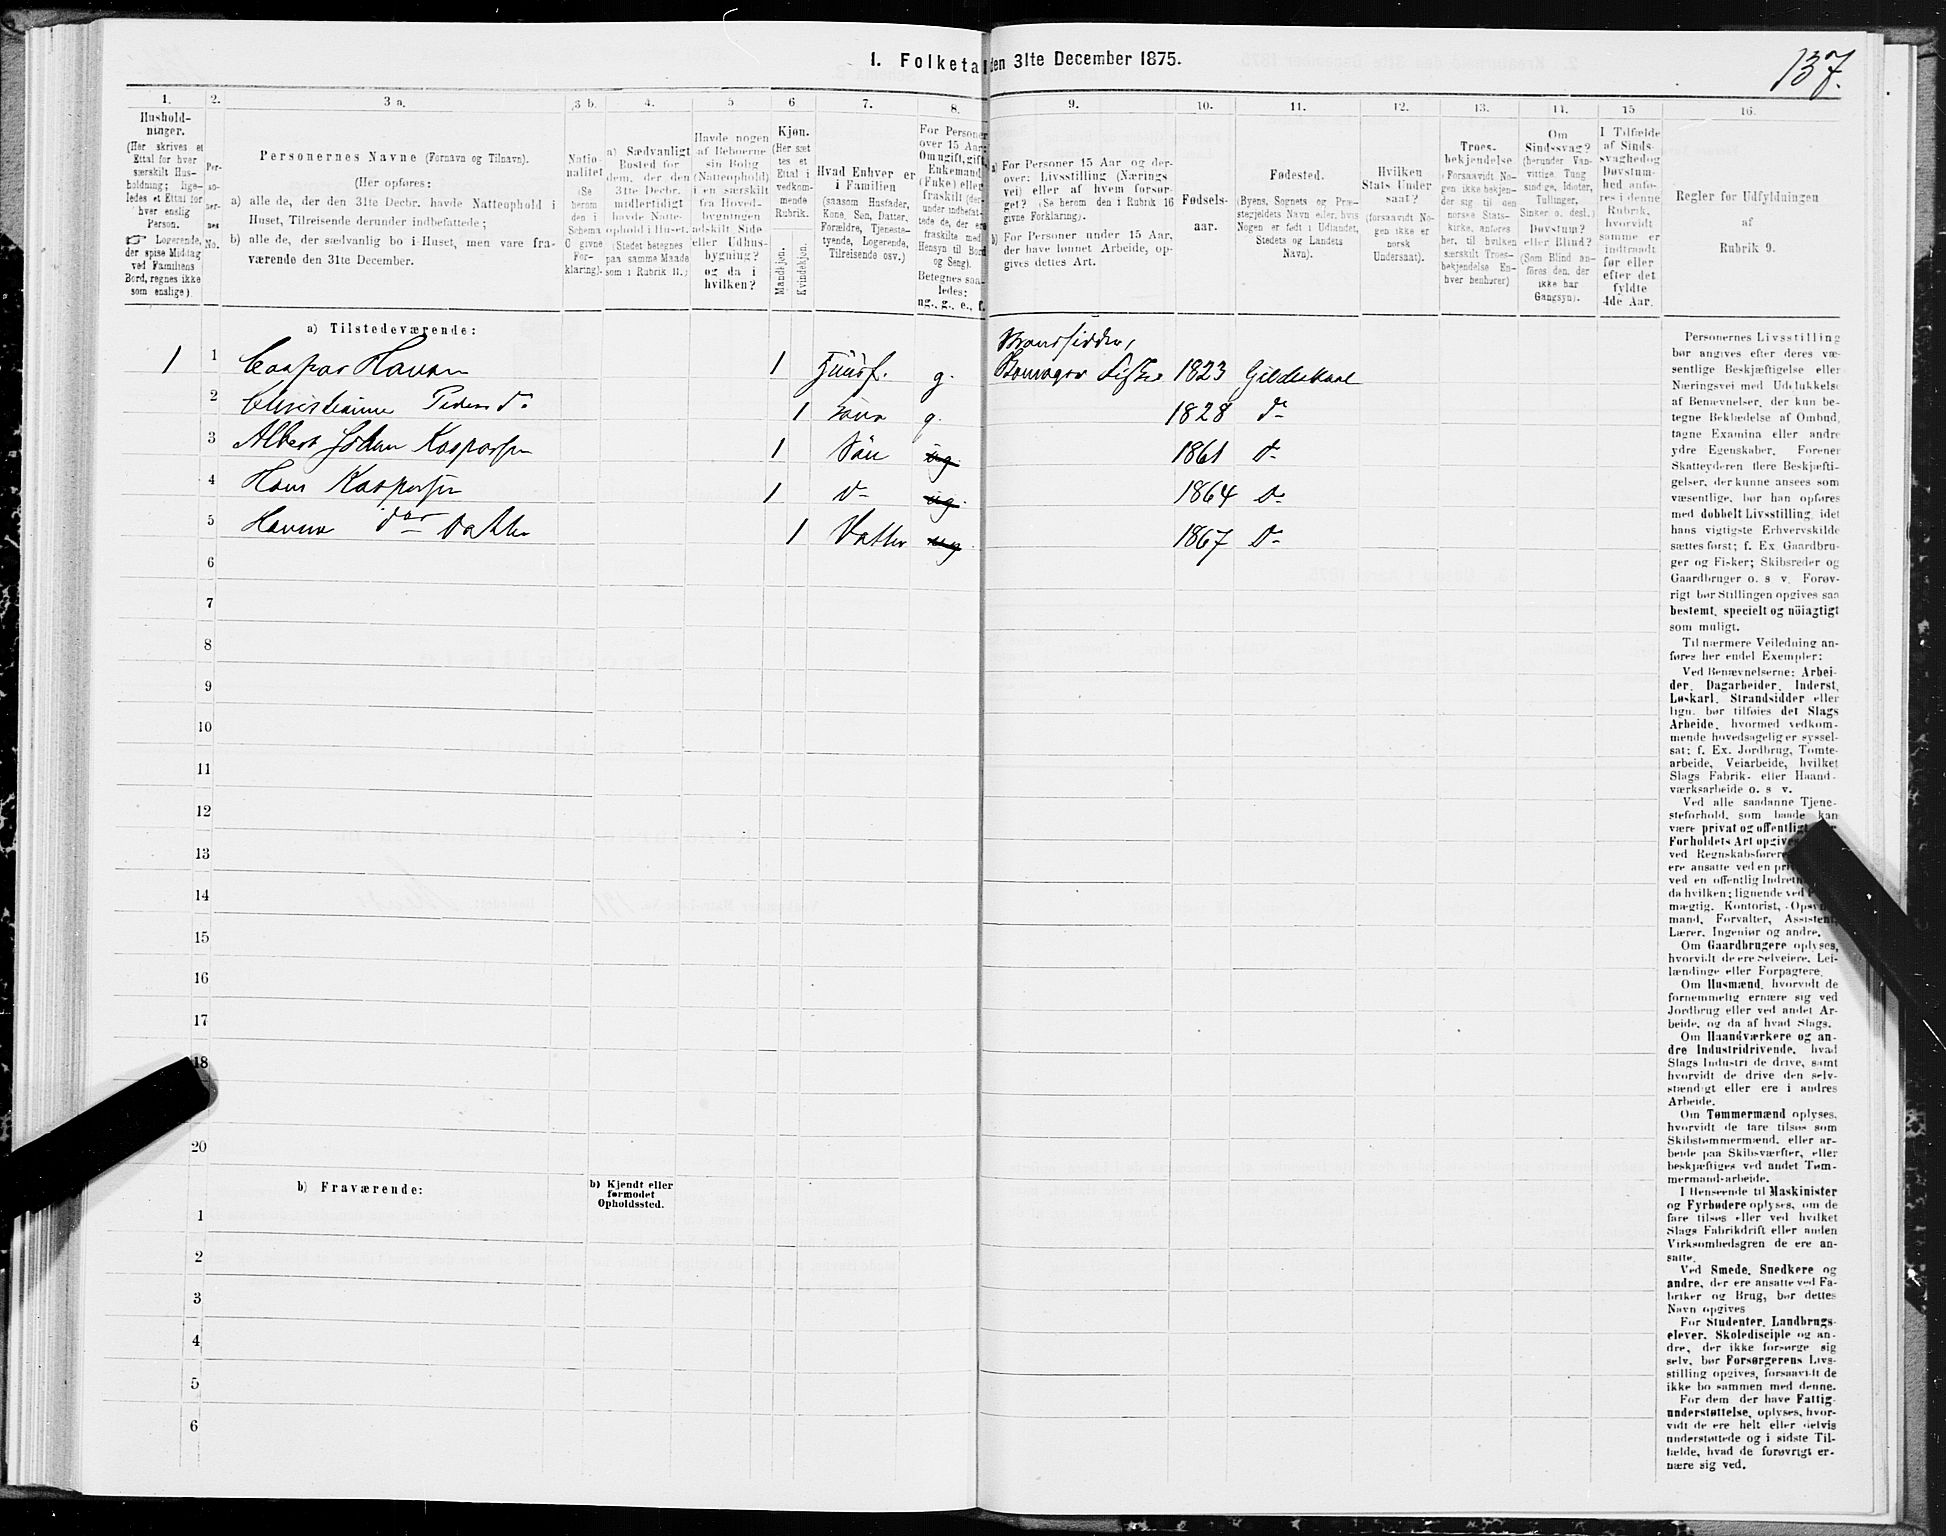 137.
1. Folketa den 31te December 1875.
1. 2. 3 a. 3 b. 4. 5 6 7. 8. 9. 10. 11. 12. 13. 14. 15 16.
Hushold-
ninger.
(Her skrives et
Ettal for hver
særskilt Hus-
holdning; lige-
ledes et Ettal for
hver enslig
Person.
Logerende,
der spise Middag
ved Familiens
Bord, regnes ikke
som enslige).
Per-
so-
ner-
nes
No.
Personernes Navne (Fornavn og Tilnavn).
(Her opføres:
a) alle de, der den 31te Decbr. havde Natteophold i
Huset, Tilreisende derunder indbefattede;
b) alle de, der sædvanlig bo i Huset, men vare fra-
værende den 31te December.
Natio-
nalitet
(Se
herom
den i
Schema
C givne
For-
klaring).
a) Sædvanligt
Bosted for
dem, der den
31te Decbr.
midlertidigt
havde Natte-
ophold i Huset.
(Stedet betegnes
paa samme Maade
som i Rubrik 11.)
Havde nogen
af Beboerne
sin Bolig
(Natteophold)
i en særskilt
fra Hoved-
bygningen
adskilt Side-
eller Udhus-
bygning?
og da i
hvilken?
Kjøn.
(Her sæt
tes et
Ettal i
vedkom-
mende
Rubrik.
Mandkjøn.
Kvindekjøn.
Hvad Enhver er
i Familien
(saasom Husfader,
Kone, Søn, Datter,
Forældre, Tjeneste-
tyende, Logerende,
Tilreisende osv.)
For Personer
over 15 Aar:
Om ugift, gift,
Enkemand
(Enke) eller
fraskilt (der-
under indbefat-
tede de, der ere
fraskilte med
Hensyn til Bord
og Seng).
Betegnes saa-
ledes:
ug., g., e., f.
a) For Personer 15 Aar og der-
over: Livsstilling (Nærings
vei) eller af hvem forsør-
get? (Se herom den i Rubrik 16
givne Forklaring).
b) For Personer under 15 Aar,
der have lønnet Arbeide, op-
gives dettes Art.
Fødsels-
aar.
Fødested.
(Byens, Sognets og Præ-
stegjeldets Navn eller, hvis
Nogen er født i Udlandet,
Stedets og Landets
Navn).
Hvilken
Stats Under
saat?
(forsaavidt No-
gen ikke er
norsk
Undersaat).
Troes-
bekjendelse
(Forsaavidt No-
gen ikke bekjen-
der sig til den
norske Stats-
kirke, anføres
her, til hvilken
særskilt Troes-
bekjendelse En-
hver henhører)
Om
Sindssvag?
(herunder Van-
vittige Tung
sindige, Idioter,
Tullinger,
Sinker o. desl.)
Døvstum?
eller Blind?
(Som Blind an-
føres den, der
ikke har
Gangsyn).
I Tilfælde
af Sinds-
svaghed og
Døvstum-
hed anfø-
res i denne
Rubrik,
hvorvidt
samme er
indtraadt
før eller
efter det
fyldte
4de Aar.
Regler for Udfyldningen
af
Rubrik 9.
a) Tilstedeværende:
Strandsidder,
1 1 Caspar Hansen 1 Huusf. g. Fisker 1823 Gildeskaal
2 Christianne Peders d. 1 Kone g. 1828 do
3 Albert Johan Kaspersen 1 Søn ug. 1861 Do
4 Hans Kaspersen 1 do ug. 1864 Do
5 Hanna do Datter 1 Datter ug 1867 Do
6
7
8
9
10
11
12
13
14
15
16
17
18
20
b) Fraværende:
b) Kjendt eller
formodet
Opholdssted.
1
2
3
4
5
6
Personernes Livsstilling
bør angives efter deres væ-
sentlige Beskjæftigelse eller
Næringsvei med Udelukkelse
af Benævnelser, der kun be-
tegne Beklædelse af Ombud,
tagne Examina eller andre
ydre Egenskaber. Forener
Skatteyderen flere Beskjæfti-
gelser, der kunne ansees som
væsentlige, bør han opføres
med dobbelt Livsstilling, idet
hans vigtigste Erhvervskilde
sættes først; f. Ex Gaardbru-
ger og Fisker; Skibsreder og
Gaardbruger o. s v. Forøv-
rigt bør Stillingen opgives saa
bestemt, specielt og nöiagtigt
som muligt.
Til nærmere Veiledning an-
føres her endel Exempler:
Ved Benævnelserne: Arbei-
der, Dagarbeider, Inderst,
Løskarl, Strandsidder eller
lign. bør tilføies det Slags
Arbeide, hvormed vedkom-
mende hovedsagelig er syssel-
sat; f. Ex. Jordbrug, Tomte-
arbeide, Veiarbeide, hvilket
Slags Fabrik- eller Haand-
værksarbeide o. s v.
Ved alle saadanne Tjene-
steforhold, som baade kan
være privat og offentligt
Forholdets Art opgives
ved Regnskabsfører
ere ansatte ved en pri
ved en offentlig Indretn
da hvilken; lignende ved
mægtig. Kontorist, Opsyns-
mand, Forvalter, Assistent,
Lærer, Ingeniør og andre.
Om Gaardbrugere oplyses,
hvorvidt de ere Selveiere, Lei-
lændinge eller Forpagtere.
Om Husmænd, hvorvidt de
fornemmelig ernære sig ved
Jordbrug eller ved andet Ar-
beide, og da af hvad Slags.
Om Haandværkere og an-
dre Industridrivende, hvad
Slags Industri de drive, samt
hvorvidt de drive den selv-
stændigt eller ere i andres
Arbeide.
Om Tømmermænd oplyses,
hvorvidt de fare tilsøs som
Skibstømmermænd, eller ar-
beide paa Skibsværfter, eller
beskjæftiges ved andet Tøm-
mermand-arbeide.
I Henseende til Maskinister
og Fyrbødere oplyses, om de
fare tilsøs eller ved hvilket
Slags Fabrikdrift eller anden
Virksomhedsgren de ere an-
satte.
Ved Smede, Snedkere og
andre, der ere ansatte ved Fa-
briker og Brug, bør dettes
Navn opgives
For Studenter, Landbrugs-
elever, Skoledisciple og an-
dre, der ikke forsørge sig
selv, bør Forsørgerens Livs-
stilling opgives, forsaavidt de
ikke bo sammen med denne.
For dem der have Fattig-
understøttelse, oplyses, hvor-
vidt de ere helt eller delvis
understøttede og i sidste Til-
fælde, hvad de forøvrigt er-
nære sig ved.